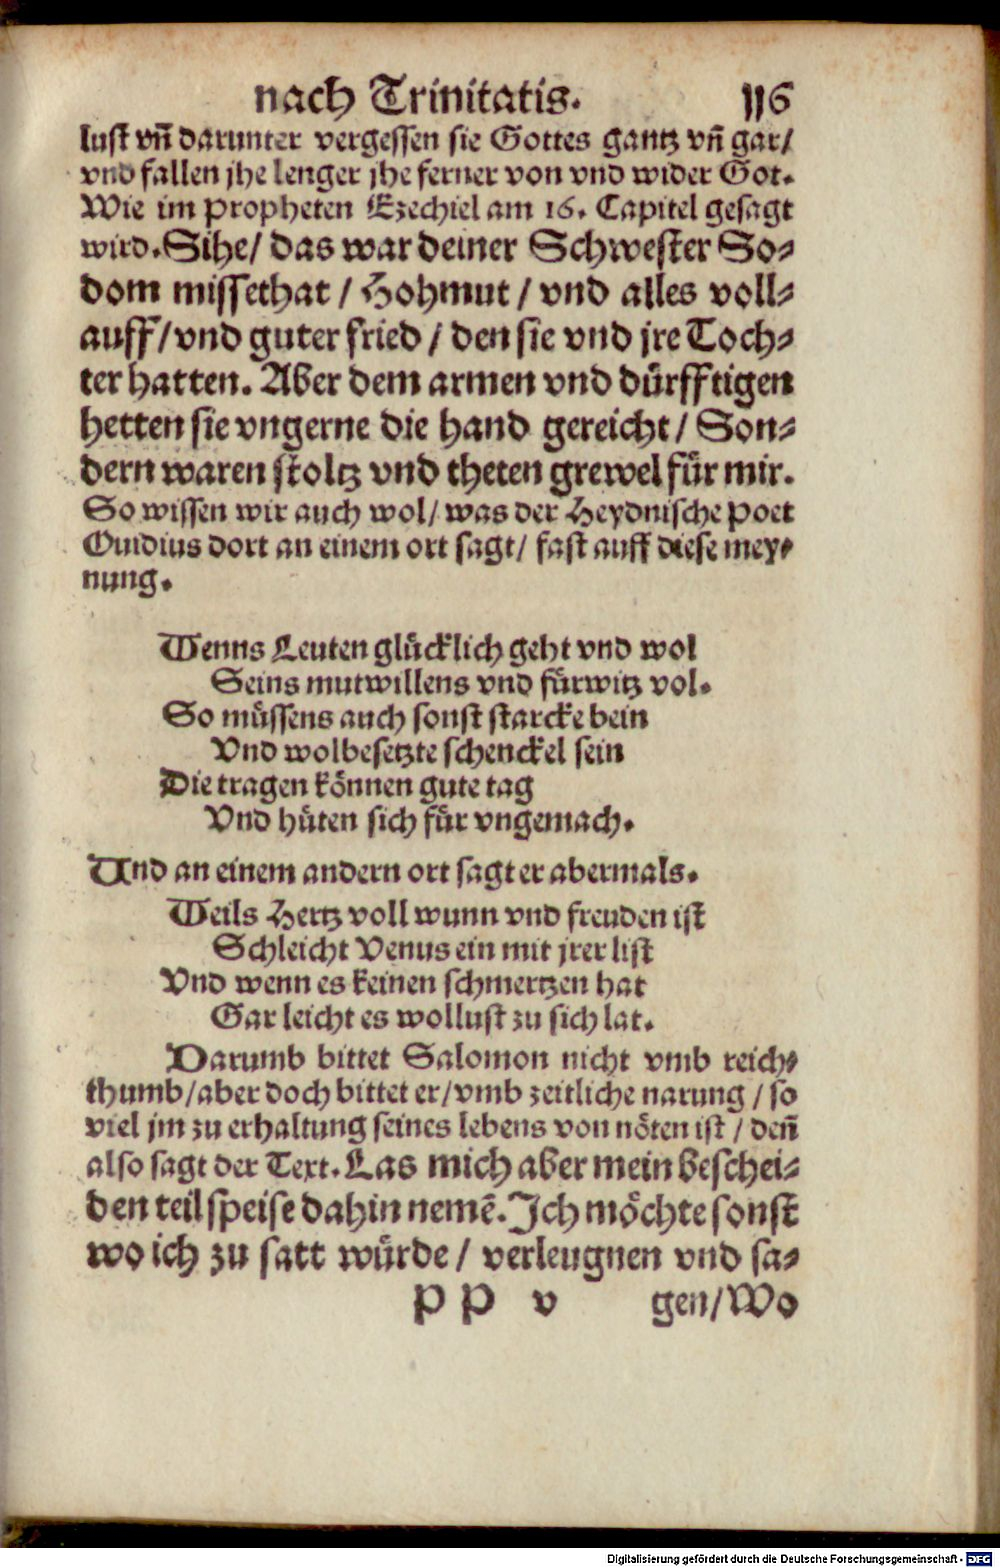 nach Trinitatis. 116
lust vñ darunter vergessen sie Gottes gantz vñ gar/
vnd fallen jhe lenger jhe ferner von vnd wider Got.
Wie im Propheten Ezechiel am 16. Capitel gesagt
wird. Sihe/ das war deiner Schwester So-
dom missethat / Hohmut / vnd alles voll-
auff/ vnd guter fried / den sie vnd jre Toch-
ter hatten. Aber dem armen vnd dürfftigen
hetten sie vngerne die hand gereicht / Son-
dern waren stoltz vnd theten grewel für mir.
So wissen wir auch wol/ was der Heydnische Poet
Ouidius dort an einem ort sagt/ fast auff diese mey-
nung.
Wenns Leuten glücklich geht vnd wol
Seins mutwillens vnd fürwitz vol.
So müssens auch sonst starcke bein
Vnd wolbesetzte schenckel sein
Die tragen können gute tag
Vnd hüten sich für vngemach.
Und an einem andern ort sagt er abermals.
Weils Hertz voll wunn vnd freuden ist
Schleicht Venus ein mit jrer list
Vnd wenn es keinen schmertzen hat
Gar leicht es wollust zu sich lat.
Darumb bittet Salomon nicht vmb reich-
thumb/ aber doch bittet er/ vmb zeitliche narung / so
viel jm zu erhaltung seines lebens von nöten ist / deñ
also sagt der Text. Las mich aber mein beschei-
den teil speise dahin nemẽ. Ich möchte sonst
wo ich zu satt würde / verleugnen vnd sa-
PP v gen/ Wo
Digitalisierung gefördert durch die Deutsche Forschungsgemeinschaft - DFG